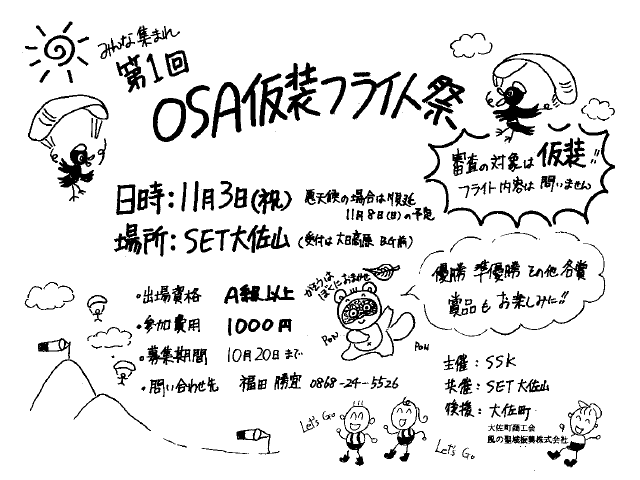 みんな集まれ
第1回
OSA仮装フライト祭
審査の対象は仮装!!
フライト内容は問いません
日時:11月3日(祝)
悪天候の場合は順延
11月8日(日)の予定
場所:SET大佐山
(受付は大日高原 B4前)
優勝 準優勝 その他各賞
賞品もお楽しみに!!
かそうは
ぼくにおまかせ
PON
PON
・出場資格 A級以上
・参加費用 1000円
・募集期間 10月20日まで
・問い合わせ先 福田 勝宜 0868-24-5526
主催:SSK
共催:SET大佐山
後援:大佐町
大佐町商工会
風の聖域振興株式会社
Let's Go
Let's Go